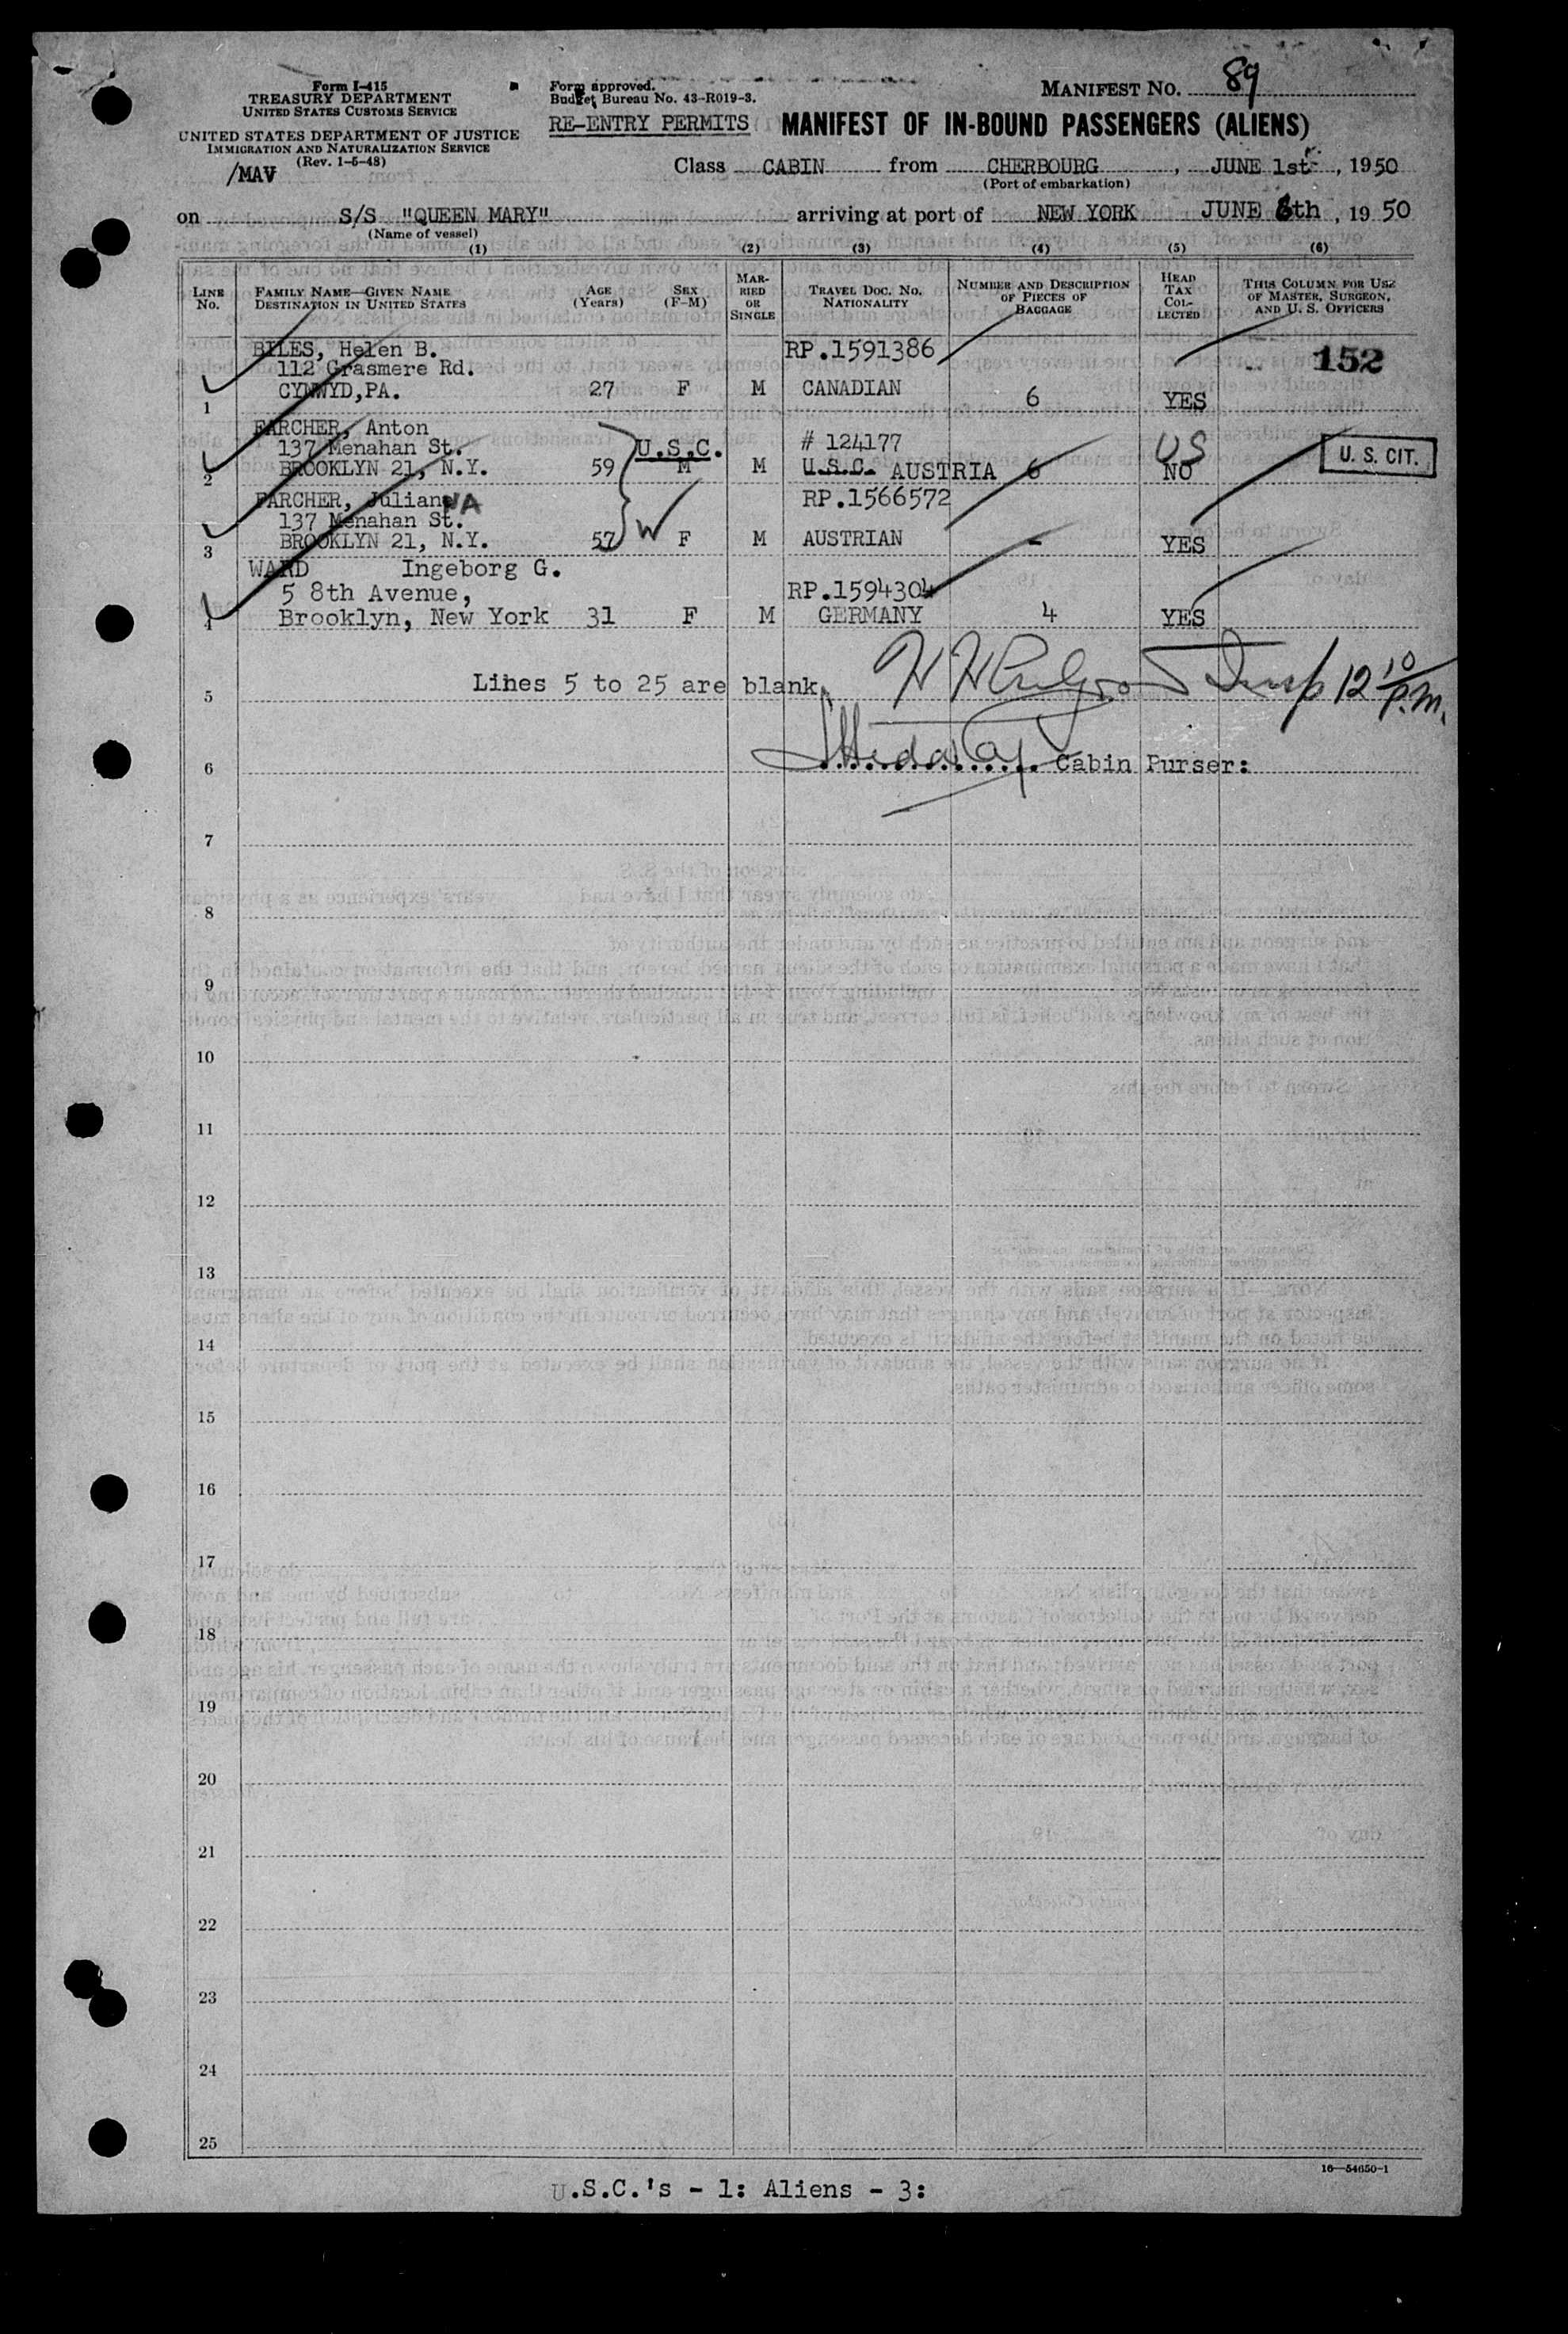 Form I-415
TREASURY DEPARTMENT
UNITED STATES CUSTOMS SERVICE
UNITED STATES DEPARTMENT OF JUSTICE
IMMIGRATION AND NATURALIZATION SERVICE
(Rev. 1-5-48)
/MAV
Form approved.
Budget Bureau No. 43-R019-3.
MANIFEST NO. 89
RE-ENTRY PERMITS MANIFEST OF IN-BOUND PASSENGERS (ALIENS)
Class CABIN from CHERBOURG, JUNE 1st, 1950
(Port of embarkation)
on S/S "QUEEN MARY" arriving at port of NEW YORK JUNE 6th, 1950
(Name of vessel)
(1) (2) (3) (4) (5) (6)
LINE NO. FAMILY NAME—GIVEN NAME DESTINATION IN UNITED STATES AGE (Years) SEX (F-M) MARRIED OR SINGLE TRAVEL DOC. NO. NATIONALITY NUMBER AND DESCRIPTION OF PIECES OF BAGGAGE HEAD TAX COLLECTED THIS COLUMN FOR USE OF MASTER, SURGEON, AND U. S. OFFICERS
BILES, Helen B. RP.1591386 152
112 Grasmere Rd.
1 CYNWYD,PA. 27 F M CANADIAN 6 YES
FARCHER, Anton # 124177 US
137 Menahan St. U.S.C.
2 BROOKLYN 21, N.Y. 59 M M U.S.C. AUSTRIA 6 NO U. S. CIT.
FARCHER, Juliana RP.1566572
137 Menahan St. W
3 BROOKLYN 21, N.Y. 57 F M AUSTRIAN - YES
WARD Ingeborg G.
5 8th Avenue, RP.1594304
4 Brooklyn, New York 31 F M GERMANY 4 YES
5 Lines 5 to 25 are blank. Insp 12 10/P.M.
6 Cabin Purser:
7
8
9
10
11
12
13
14
15
16
17
18
19
20
21
22
23
24
25
16—54650-1
U.S.C.'s - 1: Aliens - 3: